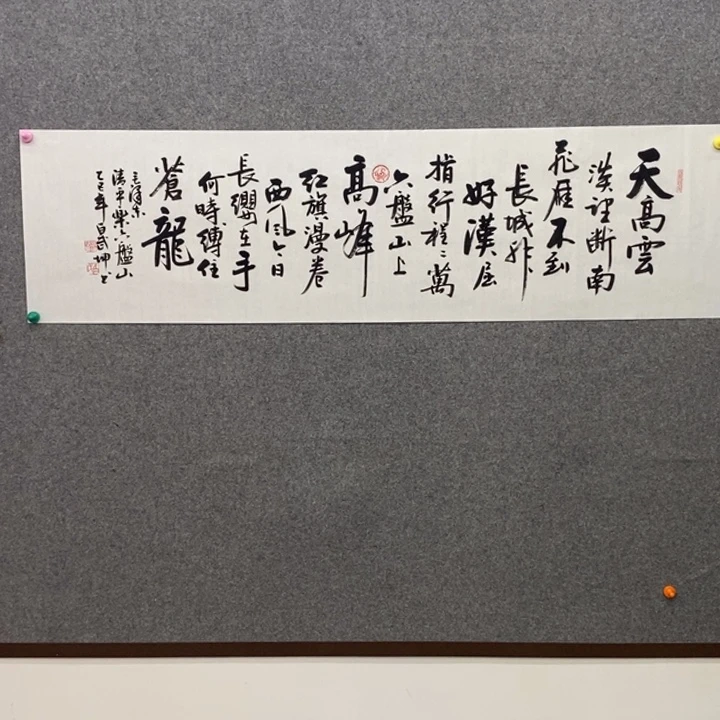 天高雲
淡望断南
飛雁不到
長城非
好漢屈
指行程二萬
六盤山上
高峰
红旗漫卷
西风今日
長纓在手
何時縛住
蒼龍
毛泽东
清平樂六盤山
乙巳年白武坤书